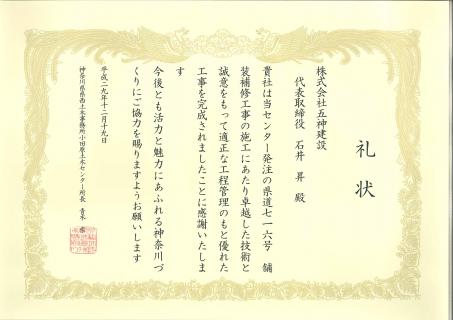 礼状
株式会社五神建設
代表取締役 石井 昇 殿
貴社は当センター発注の県道七一六号 舗
装補修工事の施工にあたり卓越した技術と
誠意をもって適正な工程管理のもと優れた
工事を完成されましたことに感謝いたしま
す
今後とも活力と魅力にあふれる神奈川づ
くりにご協力を賜りますようお願いします
平成二九年十二月十九日
神奈川県県西土木事務所小田原土木センター所長 青木